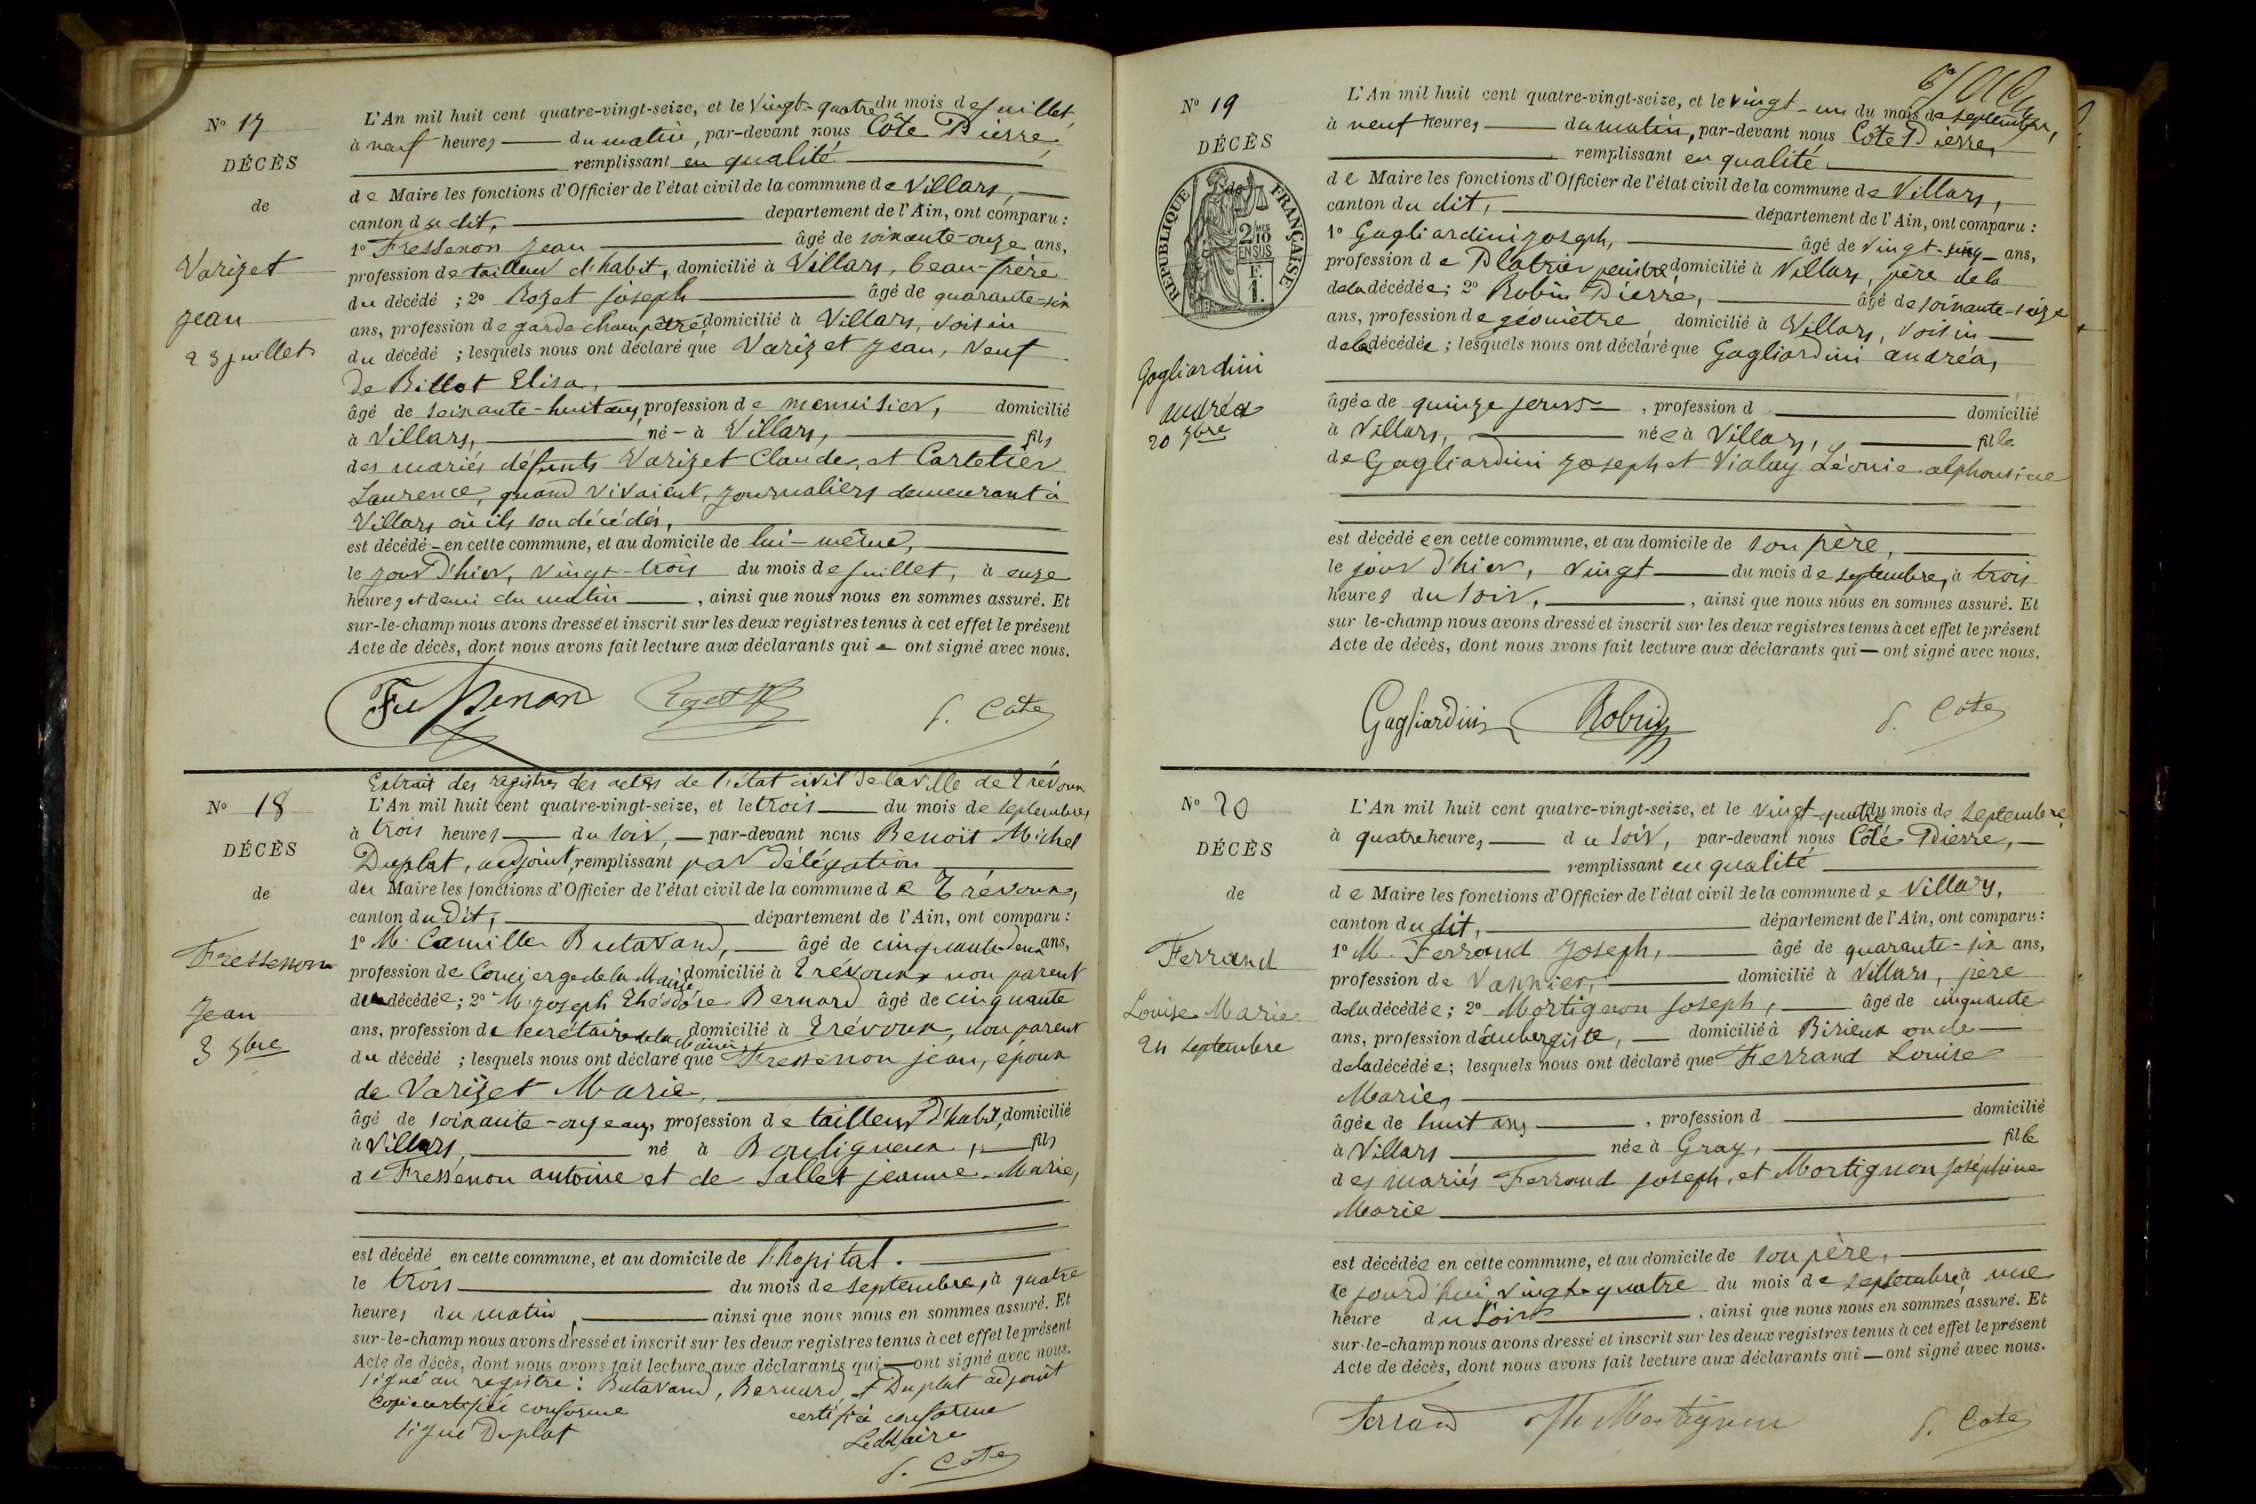 N° 17
DÉCÈS
de
Varizet
Jean
23 juillet
L'An mil huit cent quatre-vingt-seize, et le vingt-quatre du mois de juillet,
à neuf heures du matin, par-devant nous Côte Pierre,
remplissant en qualité
de Maire les fonctions d'Officier de l'état civil de la commune de Villars,
canton du dit, departement de l'Ain, ont comparu :
1° Fressenon Jean âgé de soixante-onze ans,
profession de tailleur d'habit, domicilié à Villars, beau-frère
du décédé ; 2° Rozet joseph âgé de quarante-six
ans, profession de garde champêtre, domicilié à Villars, voisin
du décédé ; lesquels nous ont déclaré que Varizet Jean, veuf
de Billot Elisa,
âgé de soixante-huit ans, profession de menuisier, domicilié
à Villars, né à Villars, fils
des mariés défunts Varizet Claude, et Carletier
Laurence, quand vivaient, journaliers demeurant à
Villars où ils son décédés,
est décédé en cette commune, et au domicile de lui-même,
le jour d'hier, vingt-trois du mois de juillet, à onze
heures et demi du matin, ainsi que nous nous en sommes assuré. Et
sur-le-champ nous avons dressé et inscrit sur les deux registres tenus à cet effet le présent
Acte de décès, dont nous avons fait lecture aux déclarants qui ont signé avec nous.
Fressenon Rozet P. Cote
N° 18
DÉCÈS
de
Fressenon
Jean
3 7bre
Extrait des registres des actes de l'état civil de la ville de Trévoux
L'An mil huit cent quatre-vingt-seize, et le trois du mois de septembre,
à trois heures du soir, par-devant nous Benoit Michel
Duplat, adjoint, remplissant par délégation
du Maire les fonctions d'Officier de l'état civil de la commune de Trévoux,
canton du dit, département de l'Ain, ont comparu :
1° M. Camille Butavand, âgé de cinquante-deux ans,
profession de Concierge de la Mairie domicilié à Trévoux, non parent
du décédée ; 2° M. Joseph Théodore Bernard âgé de cinquante
ans, profession de secrétaire de la mairie, domicilié à Trévoux, non parent
du décédé ; lesquels nous ont déclaré que Fressenon jean, époux
de Varizet Marie,
âgé de soixante-onze ans, profession de tailleur d'habit, domicilié
à Villars, né à Bouligneux, fils
de Fressenon antoine et de Sallet jeanne-Marie,
est décédé en cette commune, et au domicile de l'hopital.
le trois du mois de septembre, à quatre
heures du matin, ainsi que nous nous en sommes assuré. Et
sur-le-champ nous avons dressé et inscrit sur les deux registres tenus à cet effet le présent
Acte de décès, dont nous avons fait lecture aux déclarants qui ont signé avec nous.
signé au registre : Butavand, Bernard, et Duplat adjoint
copie certifiée conforme certifié conforme
signé Duplat Le Maire
P. Cote
N° 19
DÉCÈS
de
RÉPUBLIQUE FRANÇAISE
2/10 EN SUS
F. 1.
Gagliardini
andréa
20 7bre
L'An mil huit cent quatre-vingt-seize, et le vingt-un du mois de septembre,
à neuf heures du matin, par-devant nous Côte Pierre,
remplissant en qualité
de Maire les fonctions d'Officier de l'état civil de la commune de Villars,
canton du dit, département de l'Ain, ont comparu :
1° Gagliardini joseph, âgé de vingt-cinq ans,
profession de Platrier peintre domicilié à Villars, père de la
de la décédée ; 2° Robin Pierre, âgé de soixante-seize
ans, profession de géomètre, domicilié à Villars, voisin
de la décédée ; lesquels nous ont déclaré que Gagliardini andréa,
âgée de quinze jours, profession d domicilié
à Villars, née à Villars, fille
de Gagliardini Joseph et Vialay Léonie alphonsine
est décédée en cette commune, et au domicile de son père,
le jour d'hier, vingt du mois de septembre, à trois
heures du soir, ainsi que nous nous en sommes assuré. Et
sur le-champ nous avons dressé et inscrit sur les deux registres tenus à cet effet le présent
Acte de décès, dont nous avons fait lecture aux déclarants qui ont signé avec nous.
Gagliardini Robin P. Cote
N° 20
DÉCÈS
de
Ferrand
Louise Marie
24 septembre
L'An mil huit cent quatre-vingt-seize, et le vingt-quatre du mois de septembre,
à quatre heures du soir, par-devant nous Côte Pierre,
remplissant en qualité
de Maire les fonctions d'Officier de l'état civil de la commune de Villars,
canton du dit, département de l'Ain, ont comparu :
1° M. Ferrand Joseph, âgé de quarante-six ans,
profession de Vannier, domicilié à Villars, père
de la décédée ; 2° Mortignon Joseph, âgé de cinquante
ans, profession d'aubergiste, domicilié à Birieux oncle
de la décédée ; lesquels nous ont déclaré que Ferrand Louise
Marie,
âgée de huit ans, profession d domicilié
à Villars née à Gray, fille
des mariés Ferrand joseph, et Mortignon joséphine
Marie
est décédée en cette commune, et au domicile de son père,
le jourd'hui vingt-quatre du mois de septembre à une
heure du soir, ainsi que nous nous en sommes assuré. Et
sur-le-champ nous avons dressé et inscrit sur les deux registres tenus à cet effet le présent
Acte de décès, dont nous avons fait lecture aux déclarants qui ont signé avec nous.
Ferrand Mortignon P. Cote